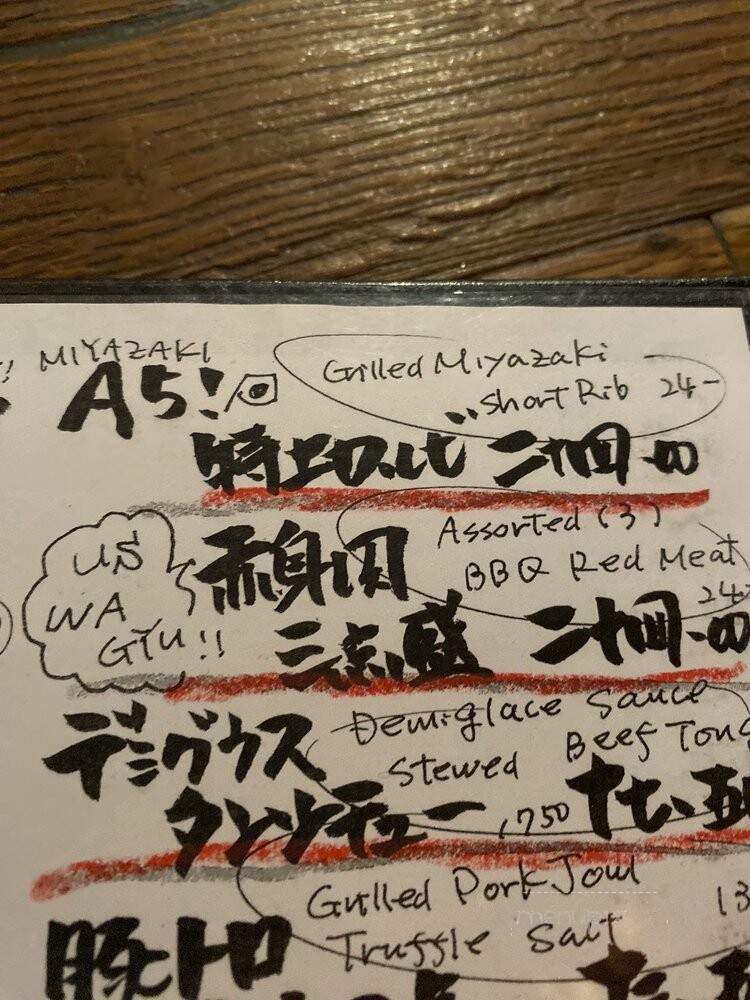 MIYAZAKI
A5!
Grilled Miyazaki
Short Rib 24-
特上カルビ 二十四.00
US
WA
GYU!!
Assorted (3)
BBQ Red Meat
24-
赤身肉
三点盛 二十四.00
Demiglace Sauce
Stewed Beef Tong
デミグラス
タンシチュー 十七.五
,750
Grilled Pork Jowl
Truffle Salt
13
豚トロ